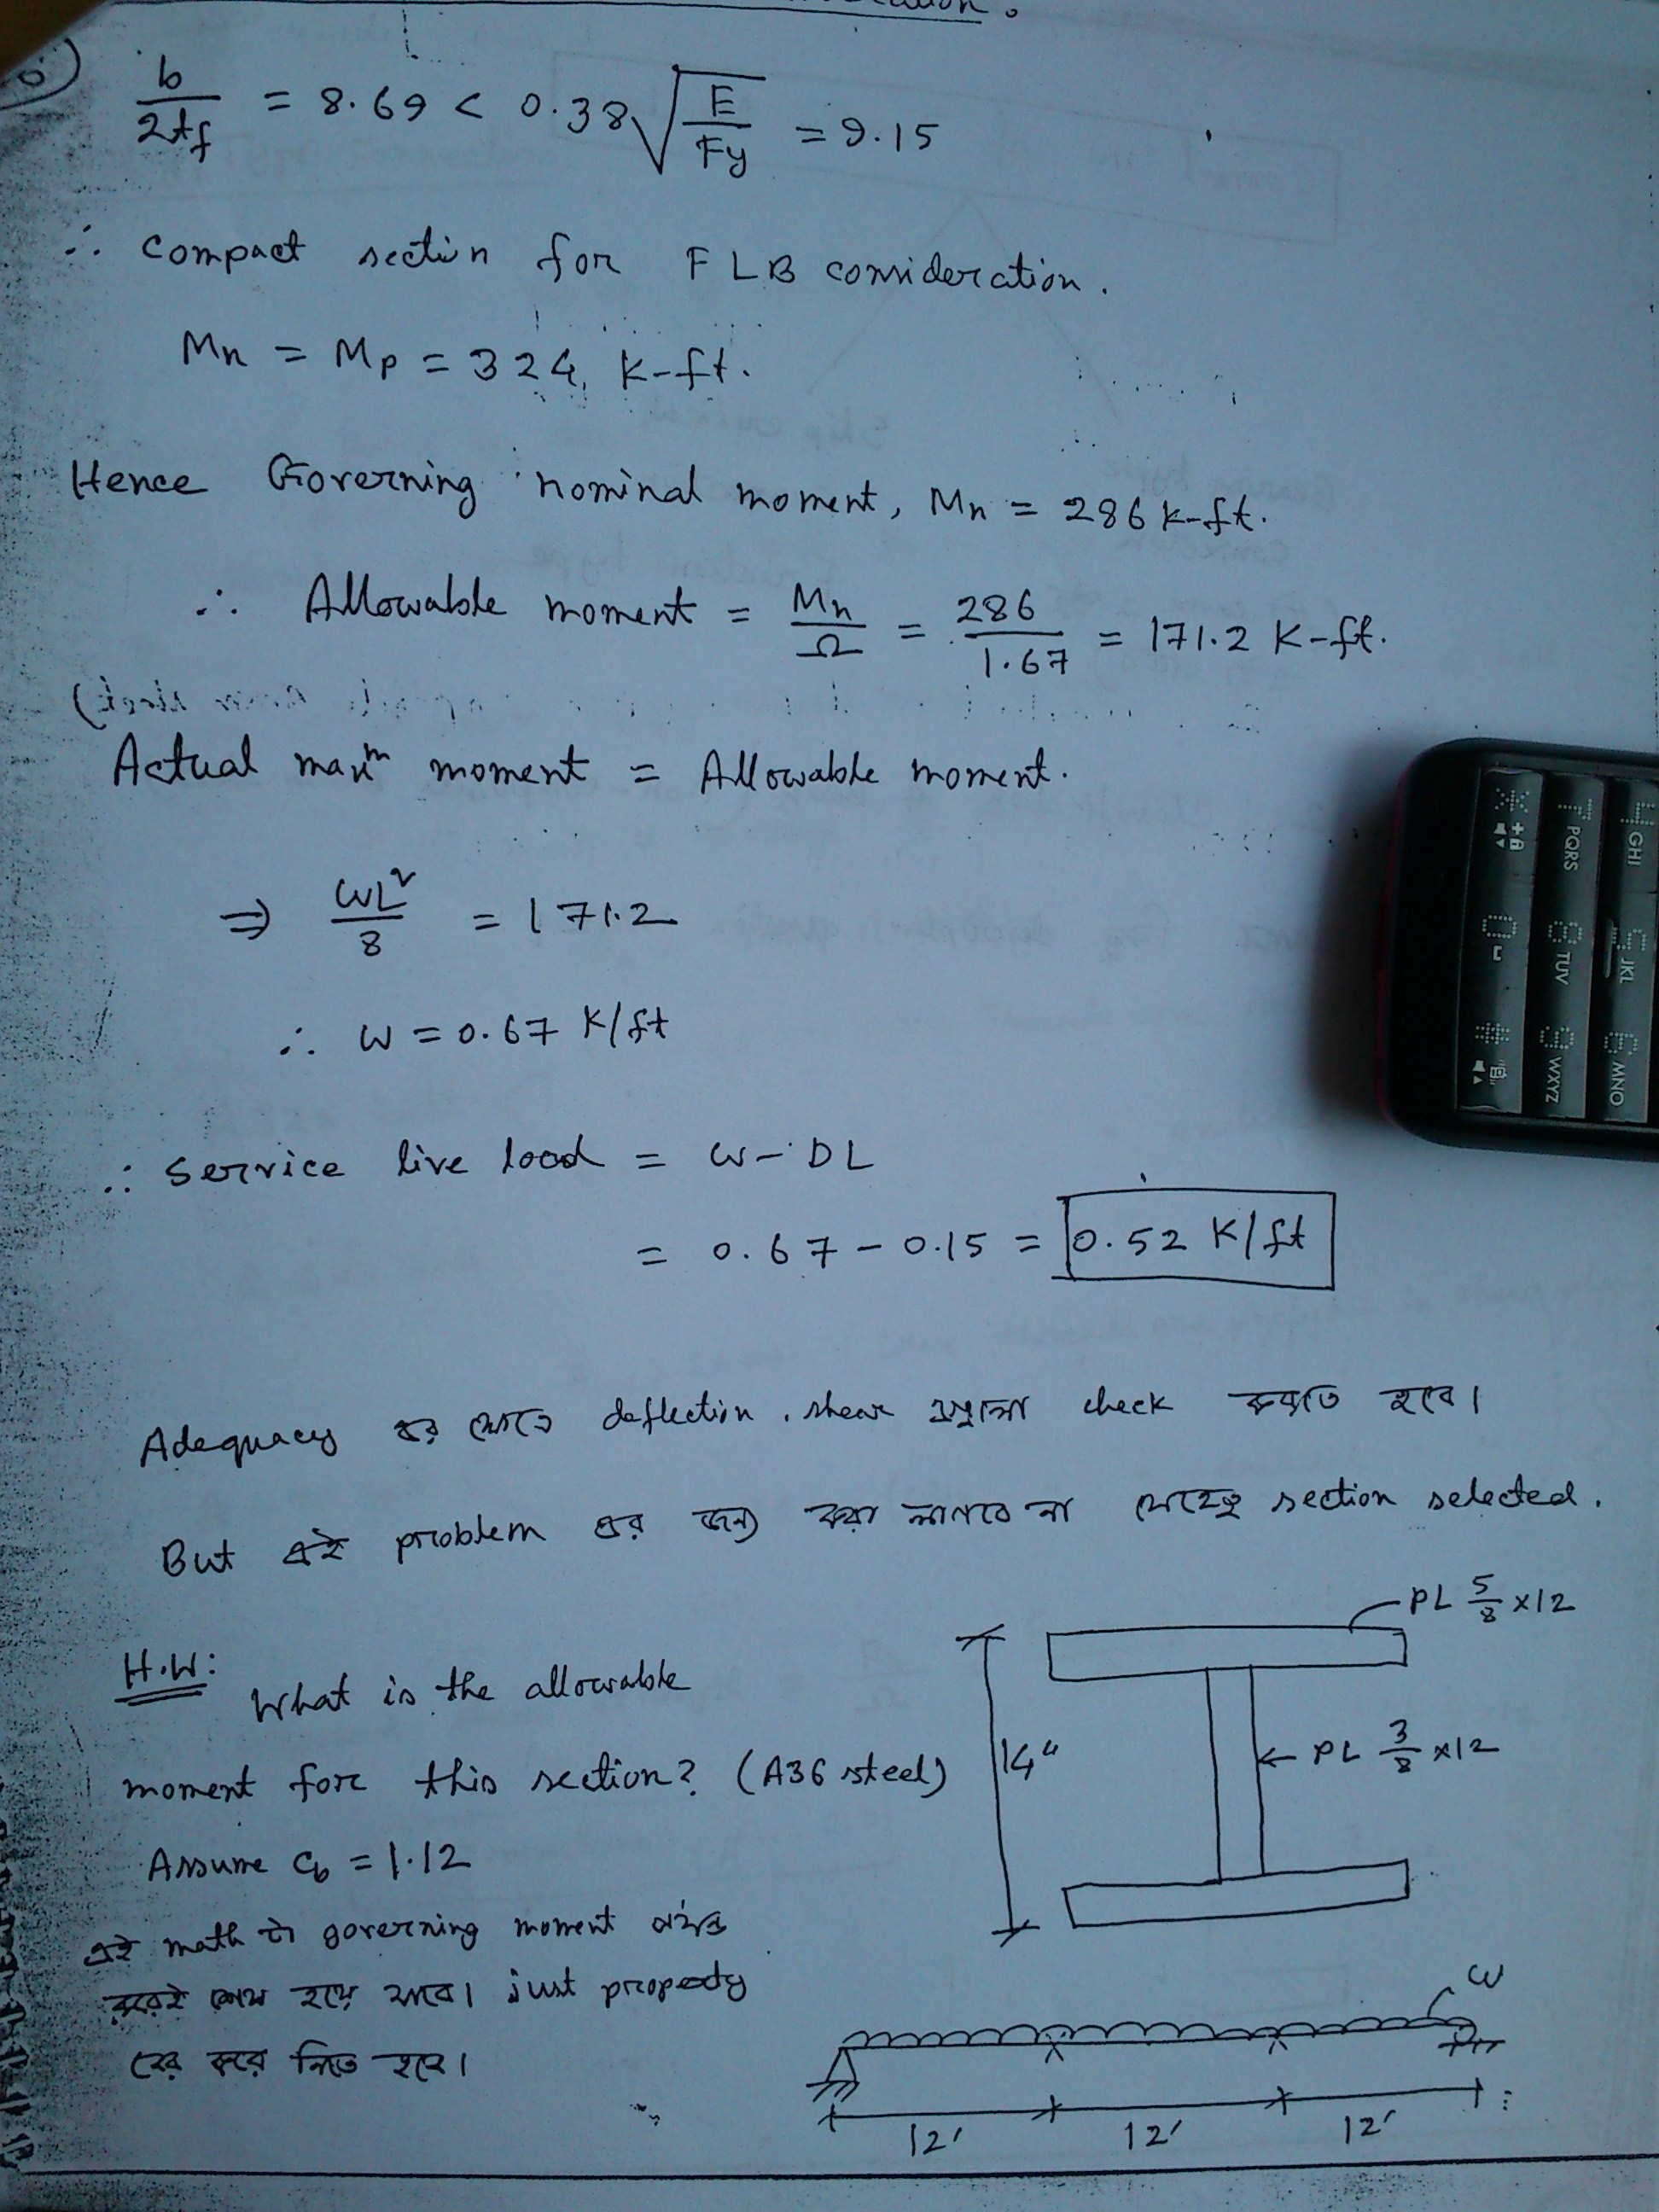 b/2tf = 8.69 < 0.38√(E/Fy) = 9.15
∴ compact section for FLB consideration.
Mn = Mp = 324 K-ft.
Hence Governing nominal moment, Mn = 286 K-ft.
∴ Allowable moment = Mn/Ω = 286/1.67 = 171.2 K-ft.
Actual maxm moment = Allowable moment.
⇒ WL²/8 = 171.2
∴ W = 0.67 K/ft
∴ Service live load = W - DL
= 0.67 - 0.15 = 0.52 K/ft
Adequacy এর ক্ষেত্রে deflection, shear এগুলো check করতে হবে।
But এই problem এর জন্য করা লাগবে না যেহেতু section selected.
PL 5/8 x12
H.W: What is the allowable
moment for this section? (A36 steel)
14"
PL 3/8 x12
Assume Cb = 1.12
এই math টা governing moment বাইর
করেই শেষ হয়ে যাবে। just property
বের করে নিতে হবে।
W
12' 12' 12'
4 GHI
5 JKL
6 MNO
7 PQRS
8 TUV
9 WXYZ
* +
0
#